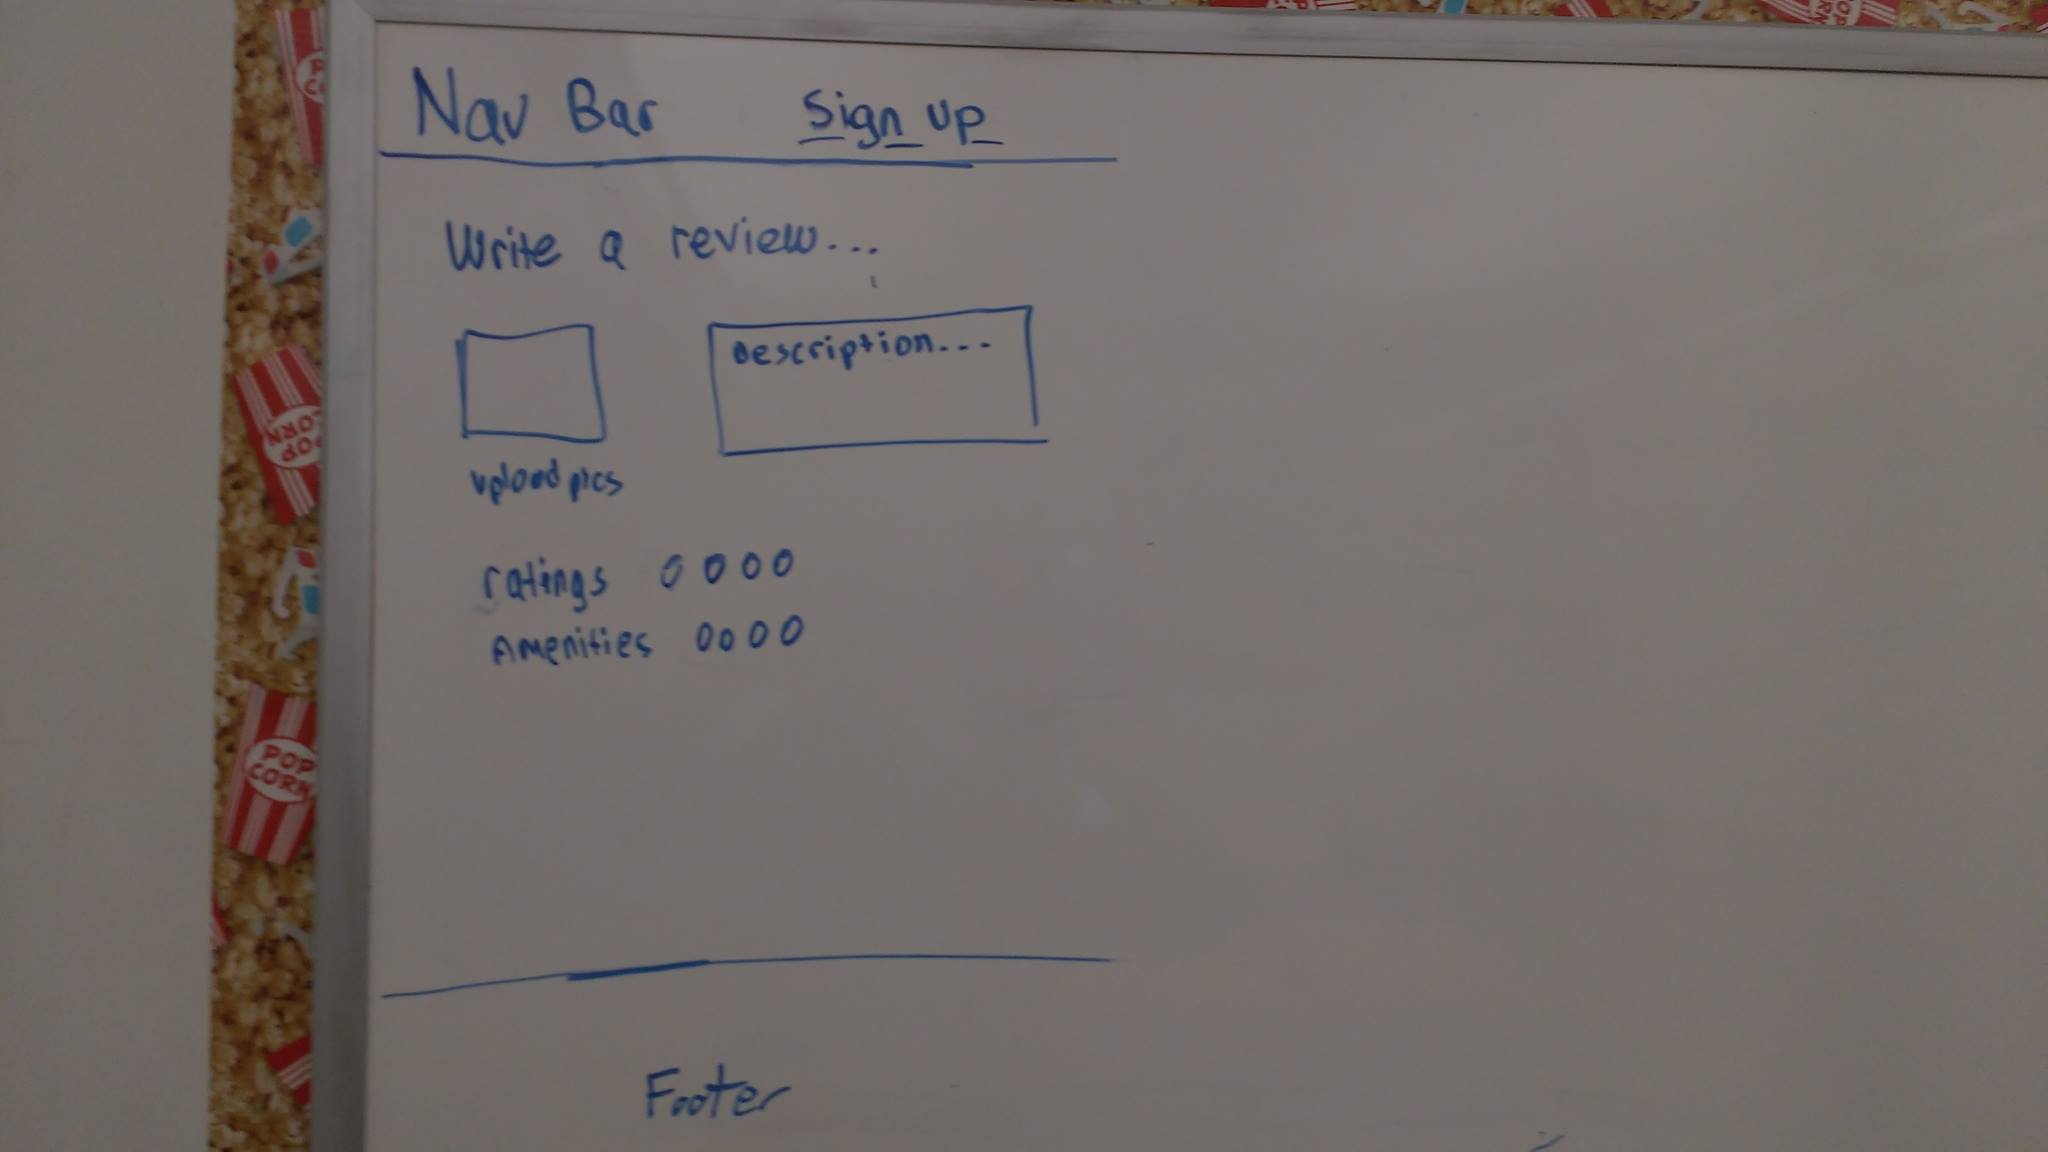 Nav Bar Sign up
Write a review...
Description...
upload pics
ratings 0 0 0 0
Amenities 0 0 0 0
Footer
POP CORN
POP CORN